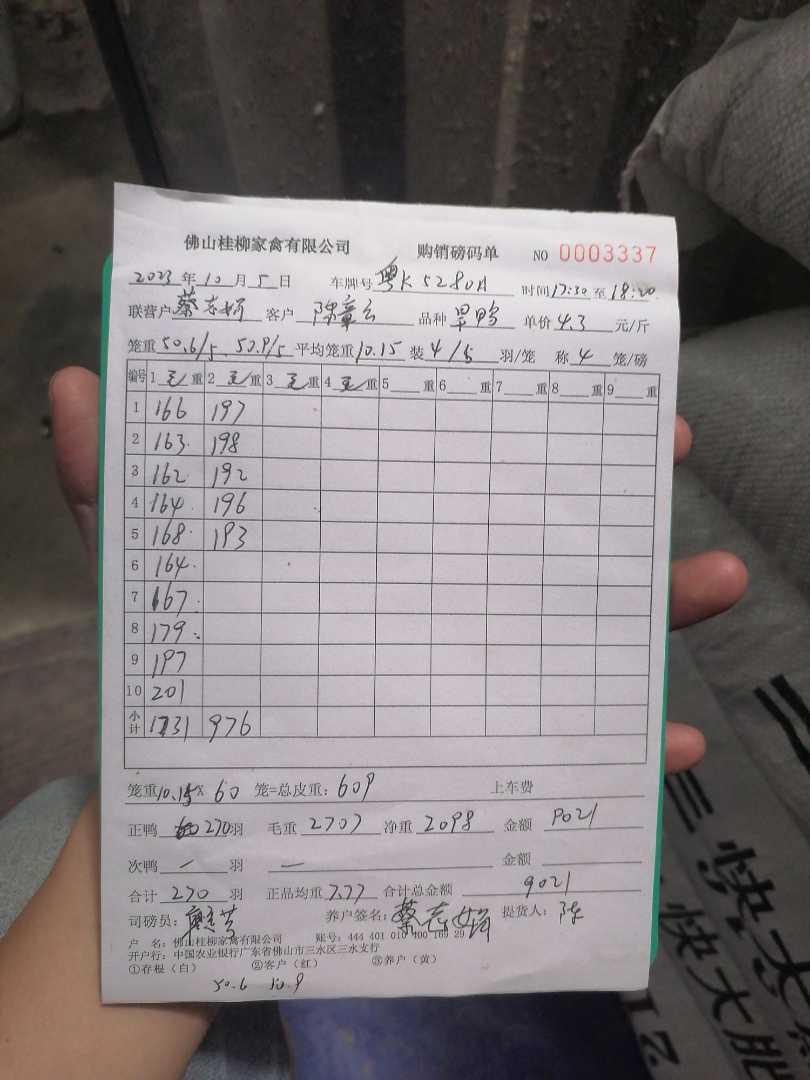 佛山桂柳家禽有限公司 购销磅码单 NO 0003337
2023年10月5日 车牌号粤K5280A 时间17:30至18:20
联营户蔡志娟 客户陈章云 品种旱鸭 单价4.3元/斤
笼重50.6/5、50.9/5平均笼重10.15装4/5羽/笼 称4笼/磅
编号 1毛重 2毛重 3毛重 4毛重 5重 6重 7重 8重 9重
1 166 197
2 163 198
3 162 192
4 164 196
5 168 193
6 164
7 167
8 179
9 197
10 201
小计 1731 976
笼重10.15×60笼=总皮重:609 上车费
正鸭270羽 毛重2707净重2098 金额9021
次鸭—羽 — 金额
合计270羽 正品均重7.77合计总金额9021
司磅员: 养户签名:蔡志娟 提货人:陈
户 名:佛山桂柳家禽有限公司 账号:444 401 010 400 169 29
开户行:中国农业银行广东省佛山市三水区三水支行
①存根(白) ②客户(红) ③养户(黄)
50.6 50.9
快大
快大肥